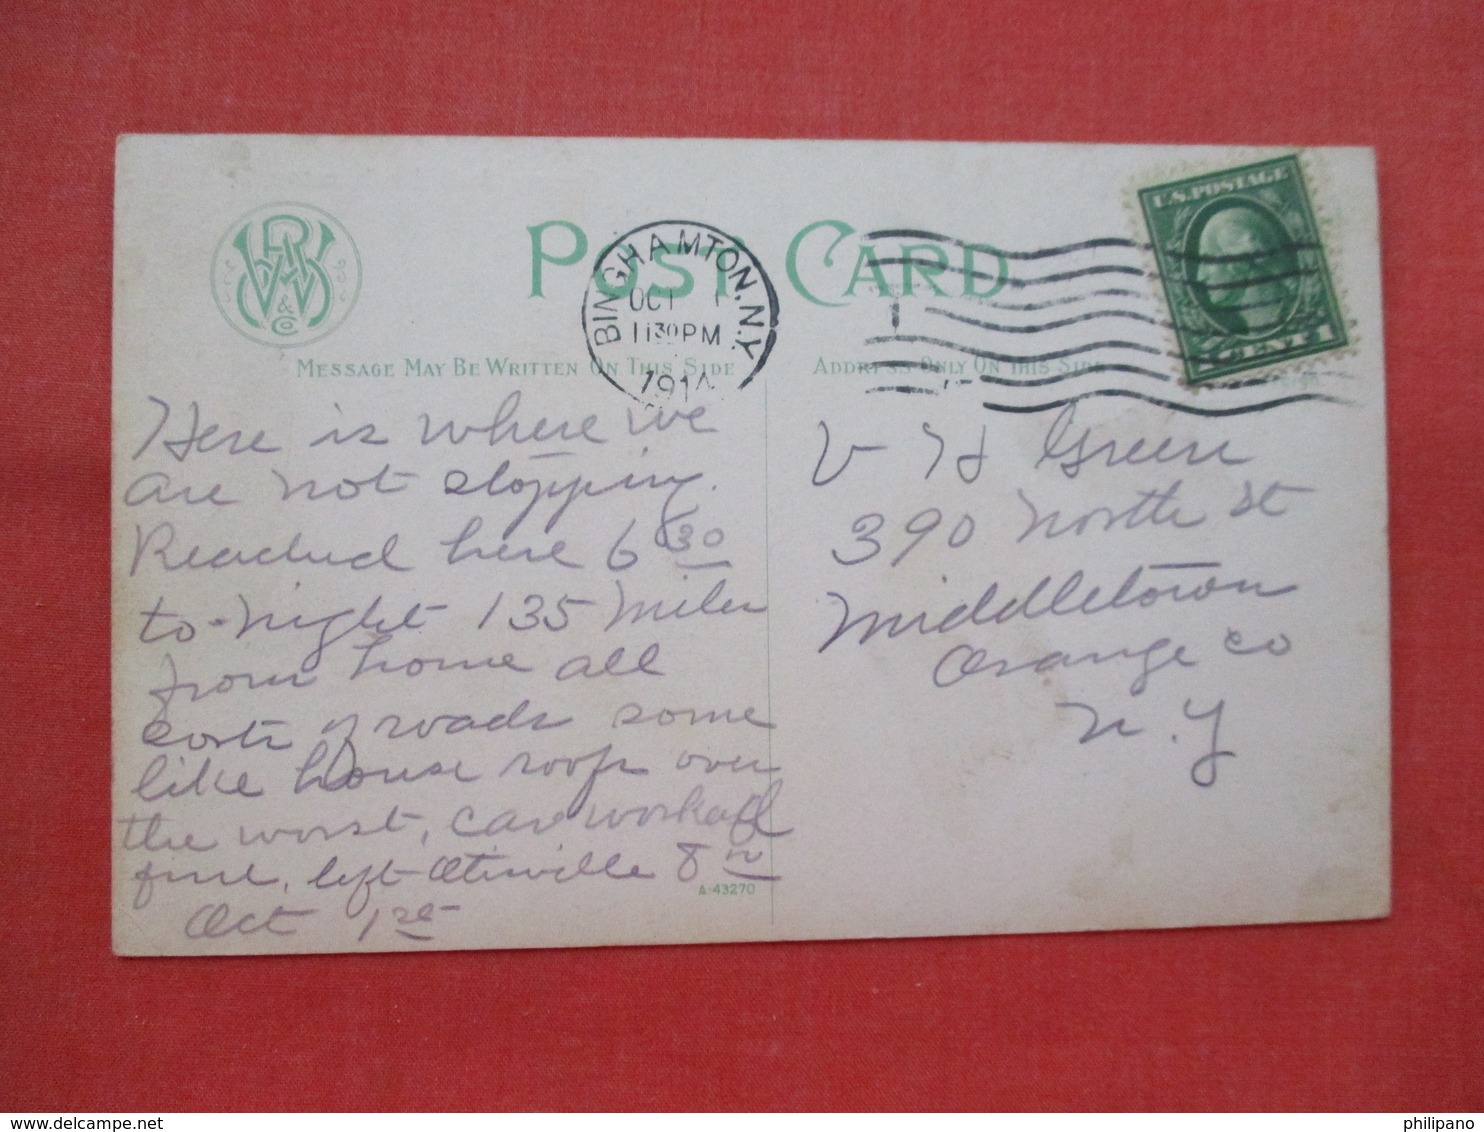 POST CARD
BINGHAMTON, N.Y.
OCT 1
1130PM
1914
U.S. POSTAGE
1 CENT 1
& Co
MESSAGE MAY BE WRITTEN ON THIS SIDE
ADDRESS ONLY ON THIS SIDE
Here is where we
are not stopping.
Reached here 6 30
to-night 135 miles
from home all
sorts of roads some
like house roofs over
the worst, car worked
fine, left Otisville 8
Oct 1
A-43270
V H Green
390 North St
Middletown
Orange Co
N.Y
philipano